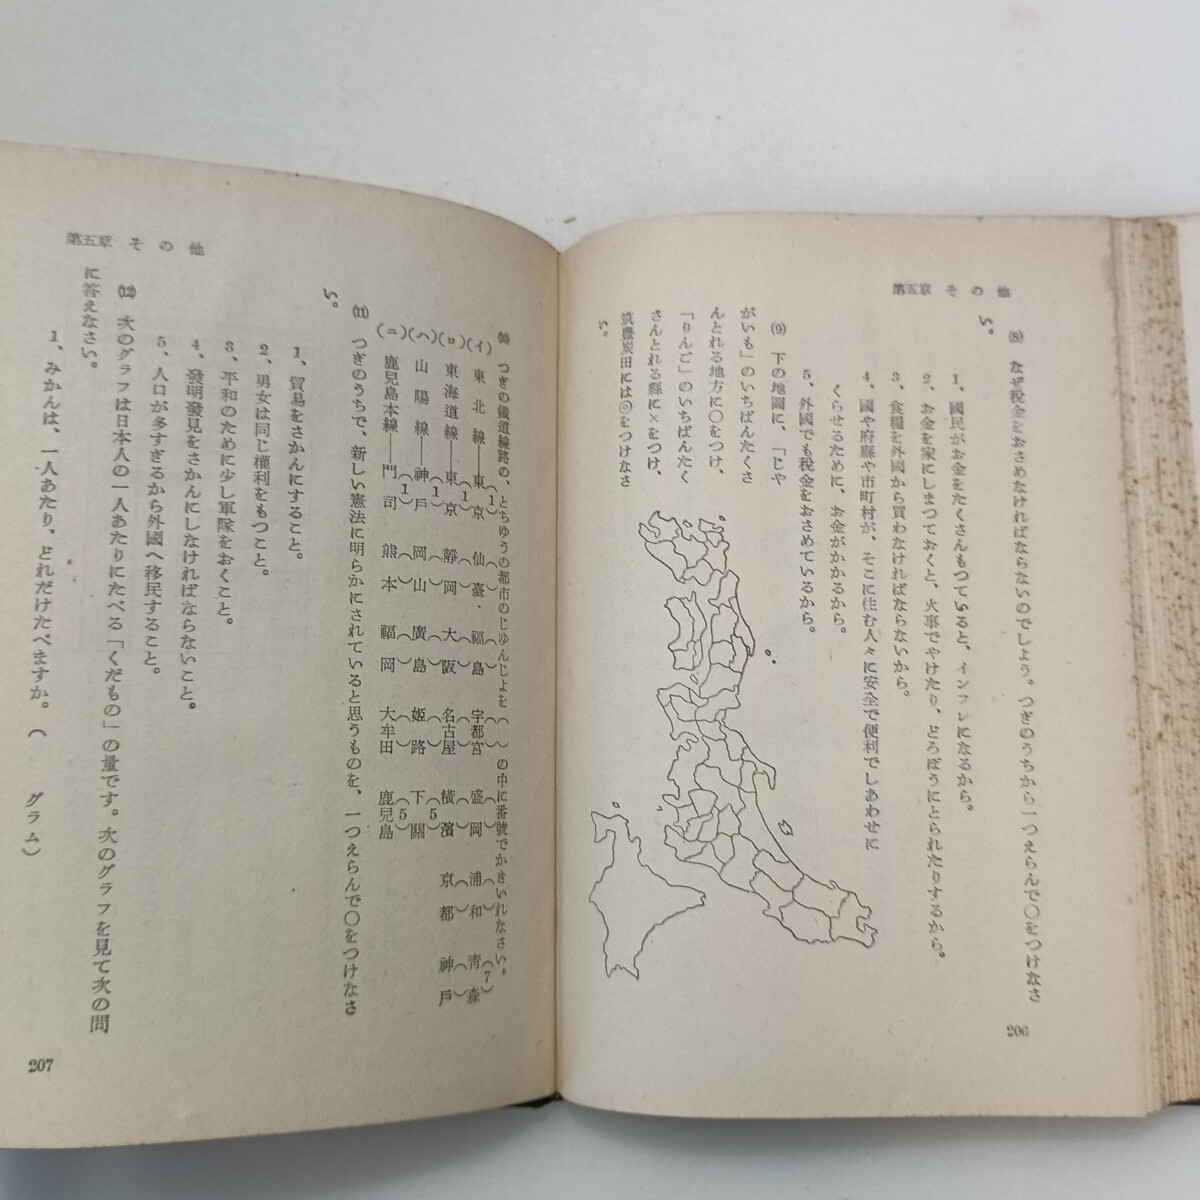 第五章 その他
⑻ なぜ税金をおさめなければならないのでしよう。つぎのうちから一つえらんで〇をつけなさ
い。
1、國民がお金をたくさんもつていると、インフレになるから。
2、お金を家にしまつておくと、火事でやけたり、どろぼうにとられたりするから。
3、食糧を外國から買わなければならないから。
4、國や府縣や市町村が、そこに住む人々に安全で便利でしあわせに
くらせるために、お金がかかるから。
5、外國でも税金をおさめているから。
⑼ 下の地圖に、「じや
がいも」のいちばんたくさ
んとれる地方に〇をつけ、
「りんご」のいちばんたく
さんとれる縣に×をつけ、
筑豊炭田には◎をつけなさ
い。
206
第五章 その他
⑽ つぎの鐵道線路の、とちゆうの都市のじゆんじよを( )の中に番號でかきいれなさい。
(イ) 東北線——東京(1) 仙臺( ) 福島( ) 宇都宮( ) 盛岡( ) 浦和( ) 靑森(7)
(ロ) 東海道線——東京(1) 靜岡( ) 大阪( ) 名古屋( ) 橫濱( ) 京都( ) 神戶( )
(ハ) 山陽線——神戶(1) 岡山( ) 廣島( ) 姬路( ) 下關(5)
(ニ) 鹿兒島本線——門司(1) 熊本( ) 福岡( ) 大牟田( ) 鹿兒島(5)
⑾ つぎのうちで、新しい憲法に明らかにされていると思うものを、一つえらんで〇をつけなさ
い。
1、貿易をさかんにすること。
2、男女は同じ權利をもつこと。
3、平和のために少し軍隊をおくこと。
4、發明發見をさかんにしなければならないこと。
5、人口が多すぎるから外國へ移民すること。
⑿ 次のグラフは日本人の一人あたりにたべる「くだもの」の量です。次のグラフを見て次の問
に答えなさい。
1、みかんは、一人あたり、どれだけたべますか。( グラム)
207